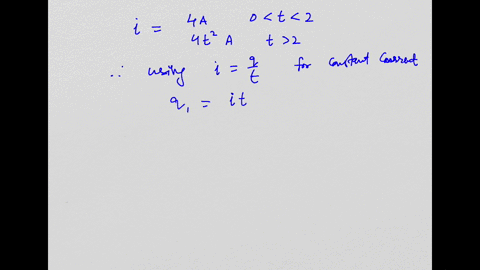 i = 4A 0 < t < 2
4t² A t > 2
∴ using i = q/t for constant current
q₁ = it